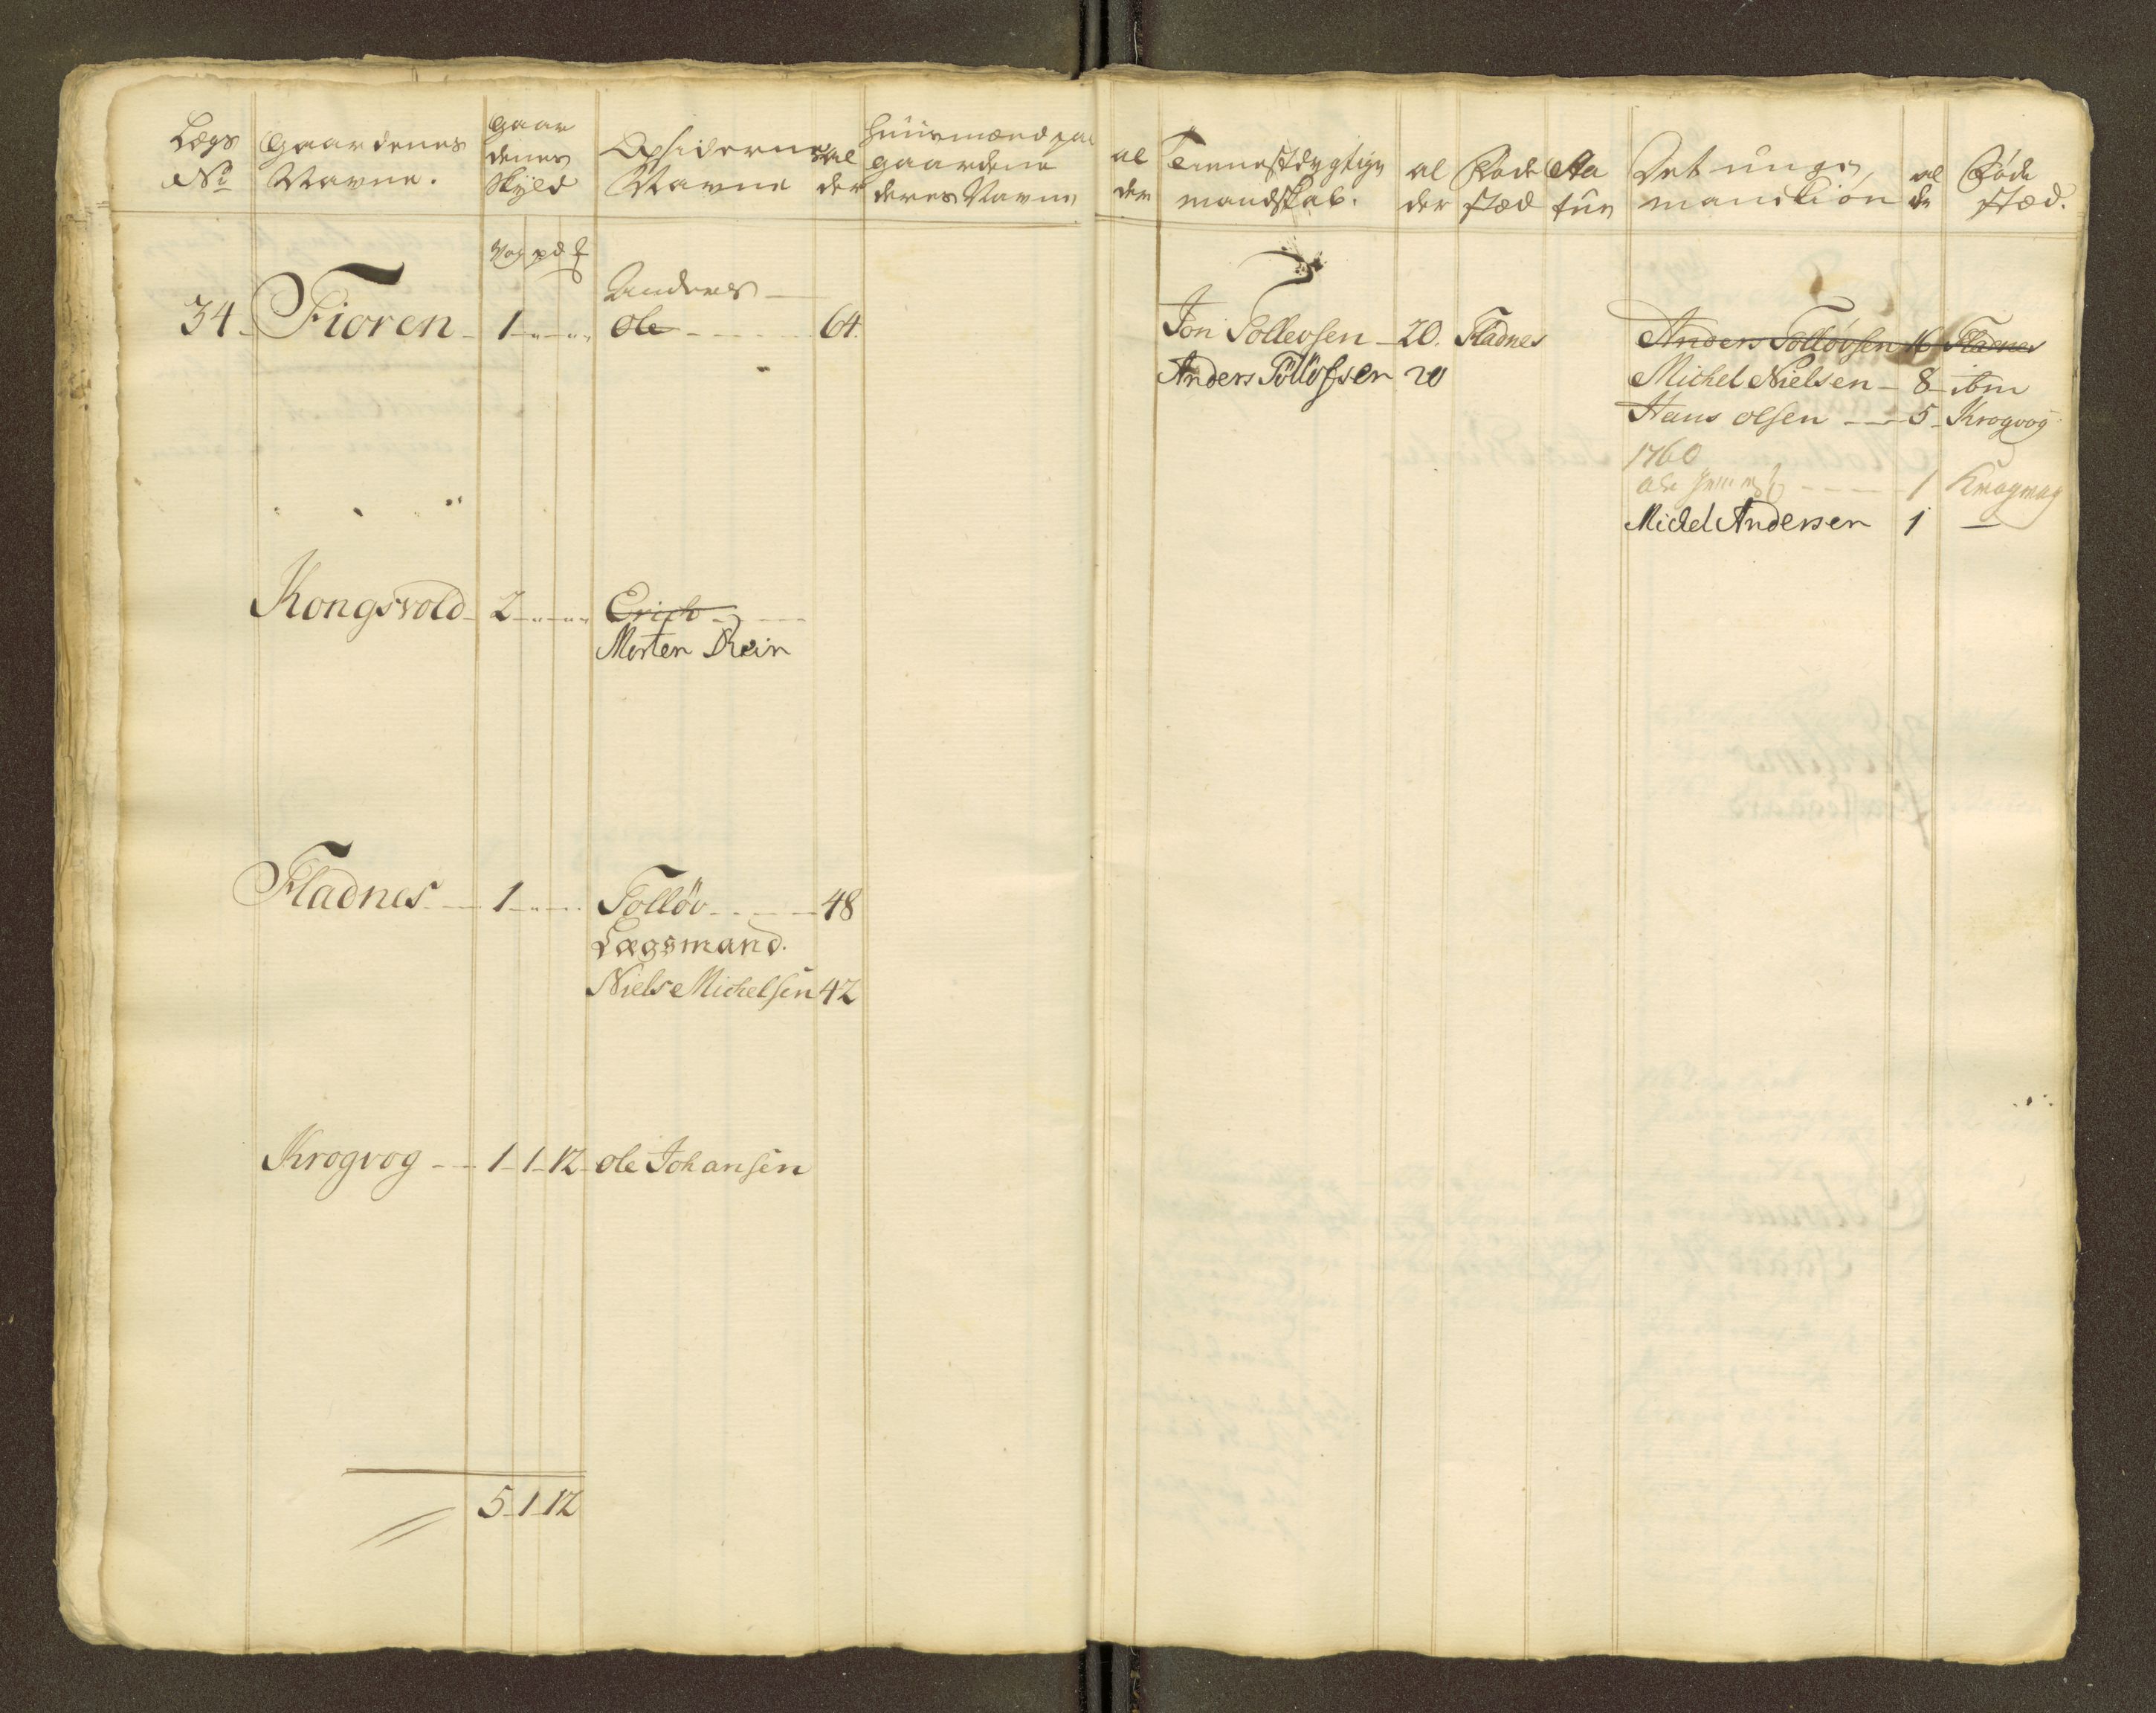 Lægs No
Gaardenes Navne.
Gaardenes Skyld
Opsidernes Navne
alder
Huusmænd paa gaardene deres Navne
alder
Tienestdygtige mandskab.
alder
Føde stæd
Statur
Det unge mandkiøn
alder
Føde stæd.
Vog pd
34 Fioren 1
Anders
Ole 64.
Jon Tollevsen 20. Fladnes
Anders Tolløfsen 16 Fladnes
Anders Tölløfsen 20
Michel Nielsen 8 ibm
Hans olsen 5 Krogvog
1760
Ole 1 Krogvog
Michel Andersen 1 —
Kongsvold 2 Erich
Morten Rein
Fladnes 1 Tolløv 48
Lægsmand.
Niels Michelsen 42
Krogvog 1 1 12 ole Johansen
5 1 12